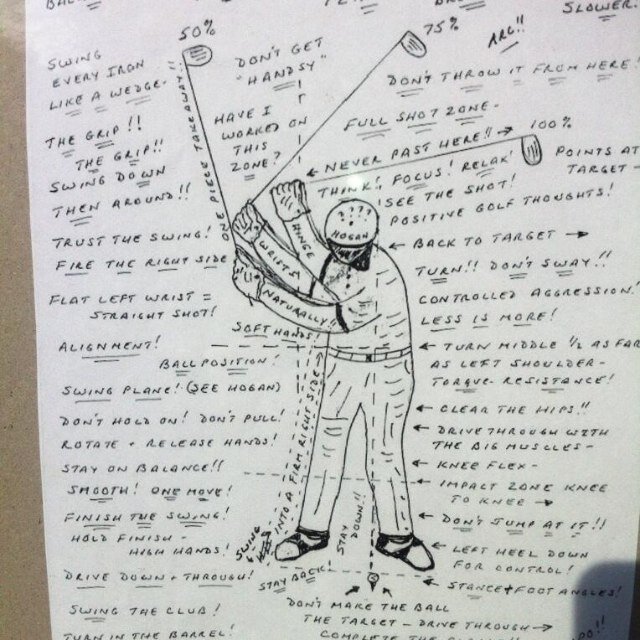 SLOWER.
50%
75%
ARC!!
SWING
EVERY IRON
LIKE A WEDGE-
DON'T GET
"HANDSY"
DON'T THROW IT FROM HERE!
THE GRIP!!
THE GRIP!!
SWING DOWN
THEN AROUND!!
ONE PIECE TAKE AWAY!!
HAVE I
WORKED ON
THIS
ZONE?
FULL SHOT ZONE-
100%
NEVER PAST HERE!!
POINTS AT
TARGET-
THINK! FOCUS! RELAX!
SEE THE SHOT!
POSITIVE GOLF THOUGHTS!
TRUST THE SWING!
FIRE THE RIGHT SIDE
????
HOGAN
HINGE
WRISTS
NATURALLY!!
BACK TO TARGET
TURN!! DON'T SWAY!!
FLAT LEFT WRIST =
STRAIGHT SHOT!
CONTROLLED AGGRESSION!
LESS IS MORE!
SOFT HANDS
ALIGNMENT!
BALL POSITION!
TURN MIDDLE 1/2 AS FAR
AS LEFT SHOULDER-
TORQUE- RESISTANCE!
SWING PLANE! (SEE HOGAN)
DON'T HOLD ON! DON'T PULL!
ROTATE + RELEASE HANDS!
CLEAR THE HIPS!!
DRIVE THROUGH WITH
THE BIG MUSCLES-
STAY ON BALANCE!!
KNEE FLEX-
SMOOTH! ONE MOVE!
IMPACT ZONE KNEE
TO KNEE
FINISH THE SWING!
HOLD FINISH-
HIGH HANDS!
SWING
INTO A FIRM RIGHT SIDE-
STAY DOWN!!
DON'T JUMP AT IT!!
LEFT HEEL DOWN
FOR CONTROL!
DRIVE DOWN + THROUGH!
STAY BACK!
STANCE + FOOT ANGLES!
SWING THE CLUB!
DON'T MAKE THE BALL
THE TARGET - DRIVE THROUGH
TURN IN THE BARREL!
COMPLETE THE